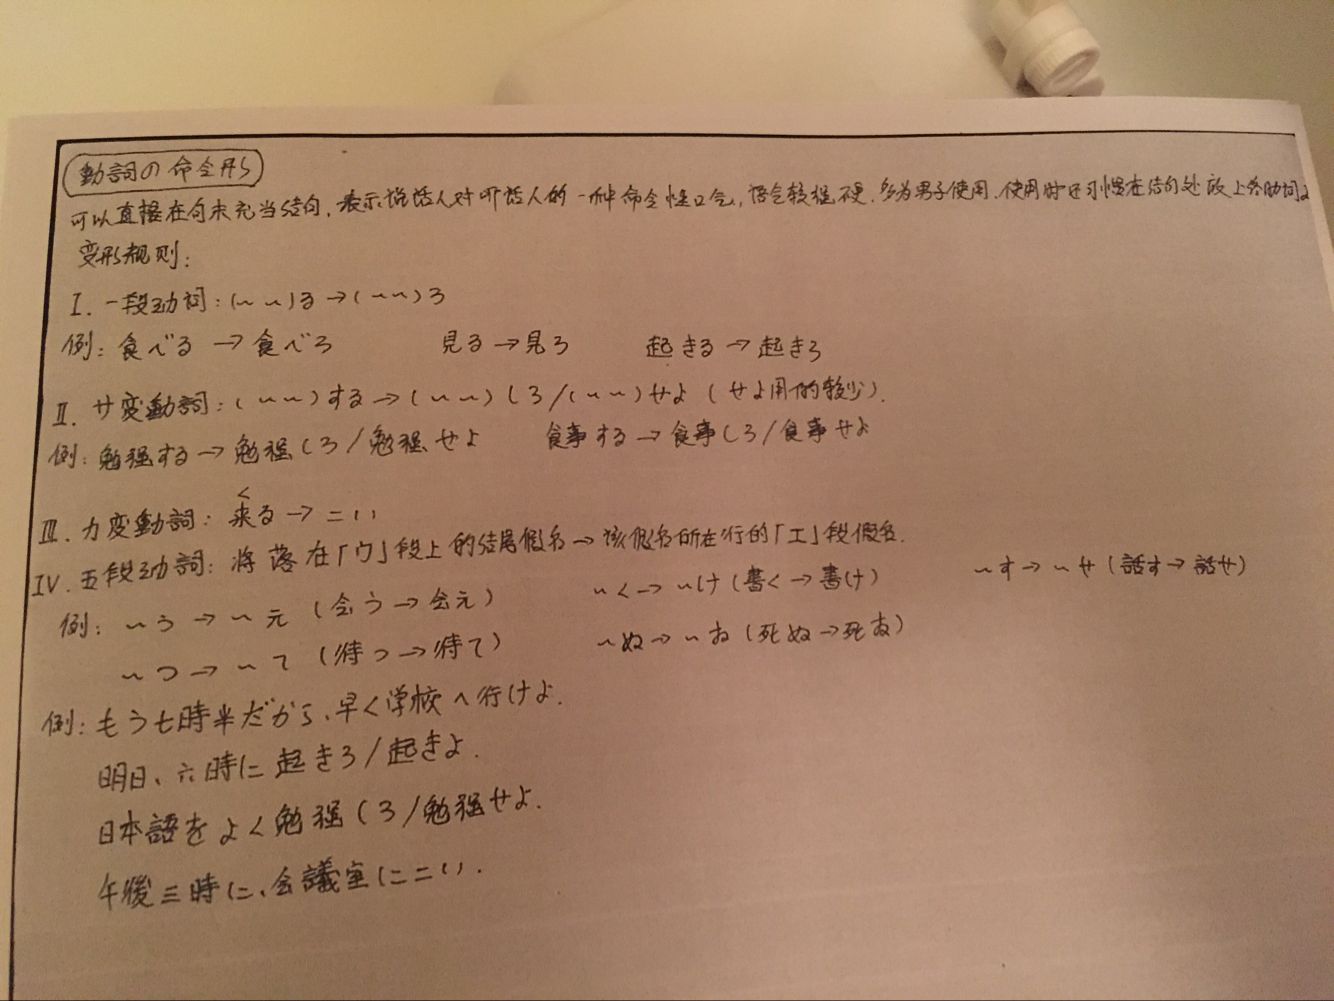 動詞の命令形
可以直接在句末充当结句，表示说话人对听话人的一种命令性口气，语气较强硬．多为男子使用．使用时还习惯在结句处放上终助词よ
变形规则：
I．一段动词：(〜〜)る→(〜〜)ろ
例：食べる→食べろ 見る→見ろ 起きる→起きろ
II．サ変動詞：(〜〜)する→(〜〜)しろ/(〜〜)せよ（せよ用的较少）．
例：勉強する→勉強しろ/勉強せよ 食事する→食事しろ/食事せよ
く
III．カ変動詞：来る→こい
IV．五段动詞：将落在「ウ」段上的结尾假名→该假名所在行的「エ」段假名．
例：〜う→〜え（会う→会え） 〜く→〜け（書く→書け） 〜す→〜せ（話す→話せ）
〜つ→〜て（待つ→待て） 〜ぬ→〜ね（死ぬ→死ね）
例：もう七時半だから、早く学校へ行けよ．
明日、六時に起きろ/起きよ．
日本語をよく勉強しろ/勉強せよ．
午後三時に、会議室にこい．